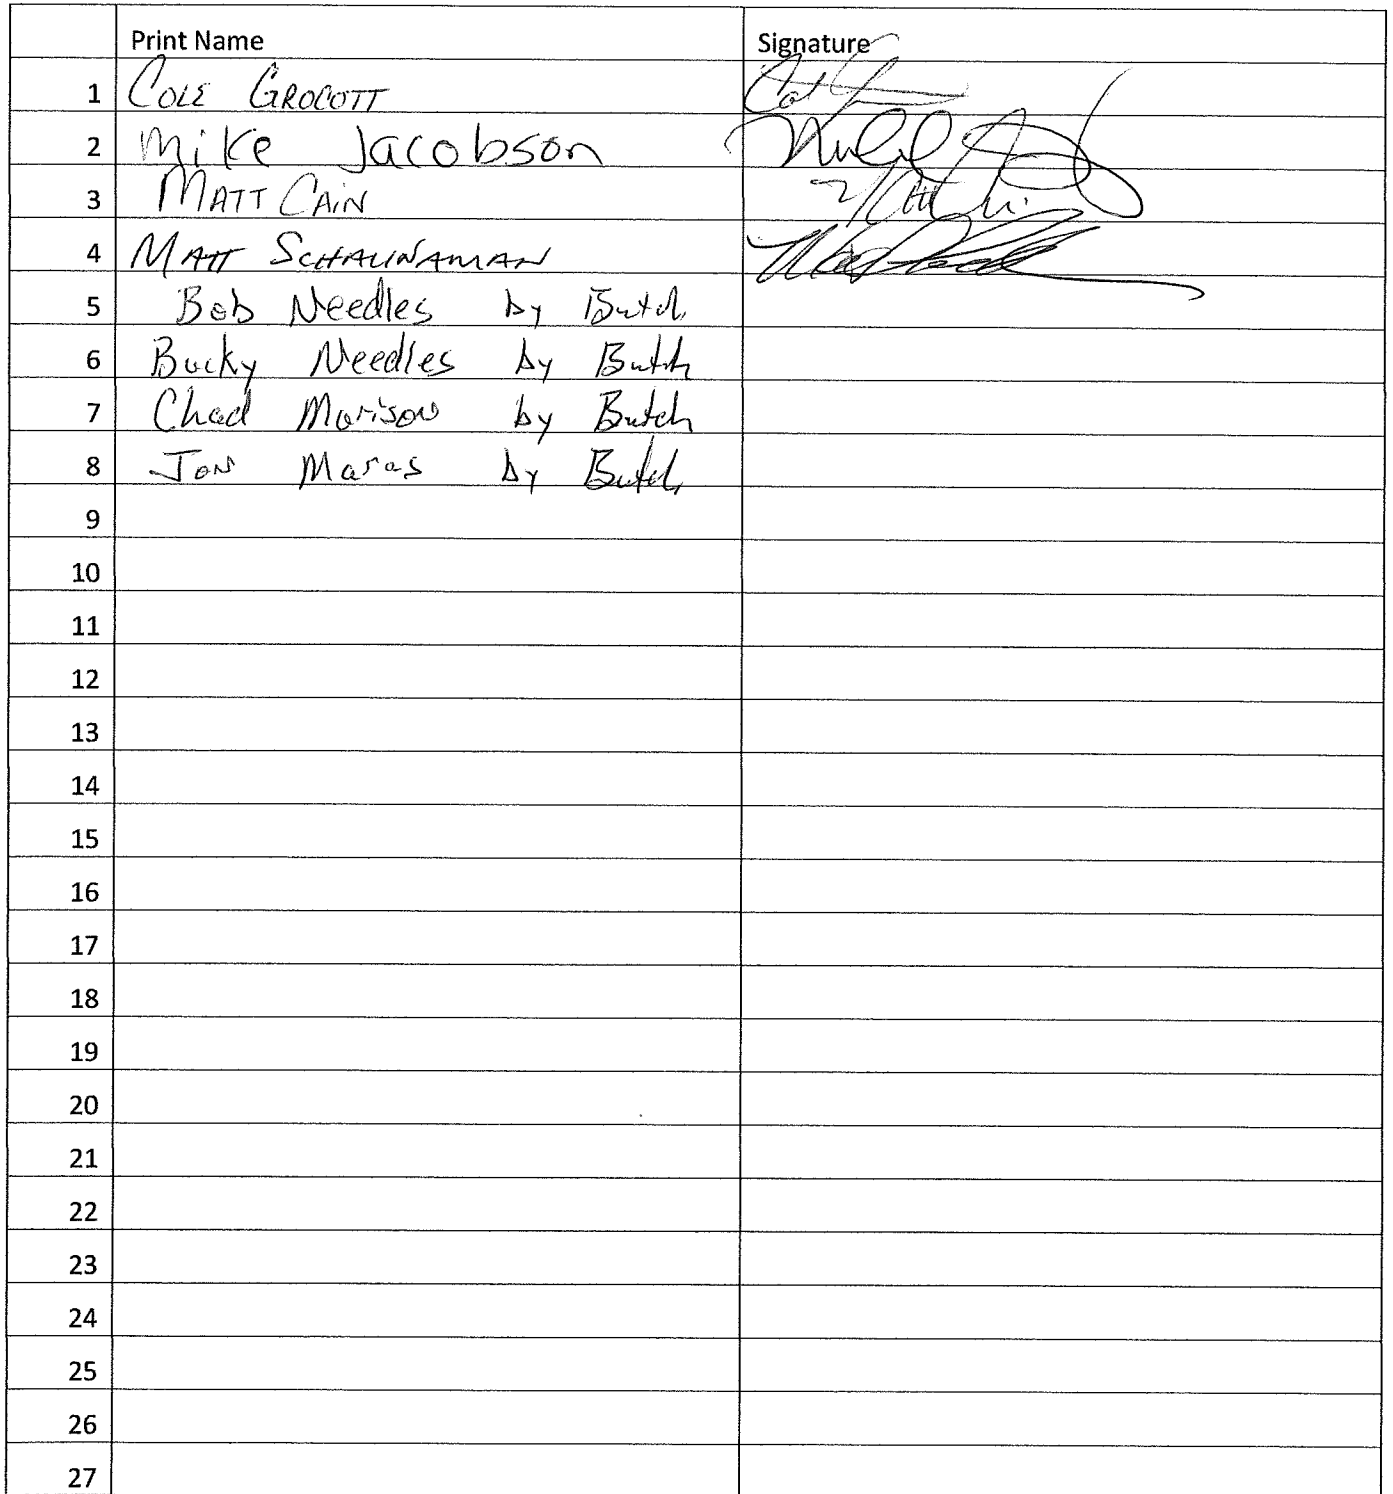 Print Name Signature
1 COLE GROCOTT
2 Mike Jacobson
3 MATT CAIN
4 MATT SCHAUNAMAN
5 Bob Needles by Butch
6 Bucky Needles by Butch
7 Chad Morison by Butch
8 Jon Maras by Butch
9
10
11
12
13
14
15
16
17
18
19
20
21
22
23
24
25
26
27